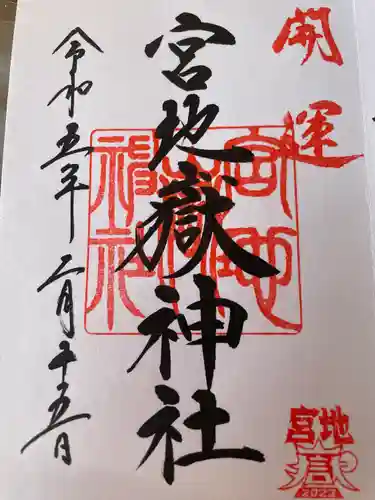 開運
宮地嶽神社
令和五年二月十五日
宮地嶽神社
宮地
嶽
2022